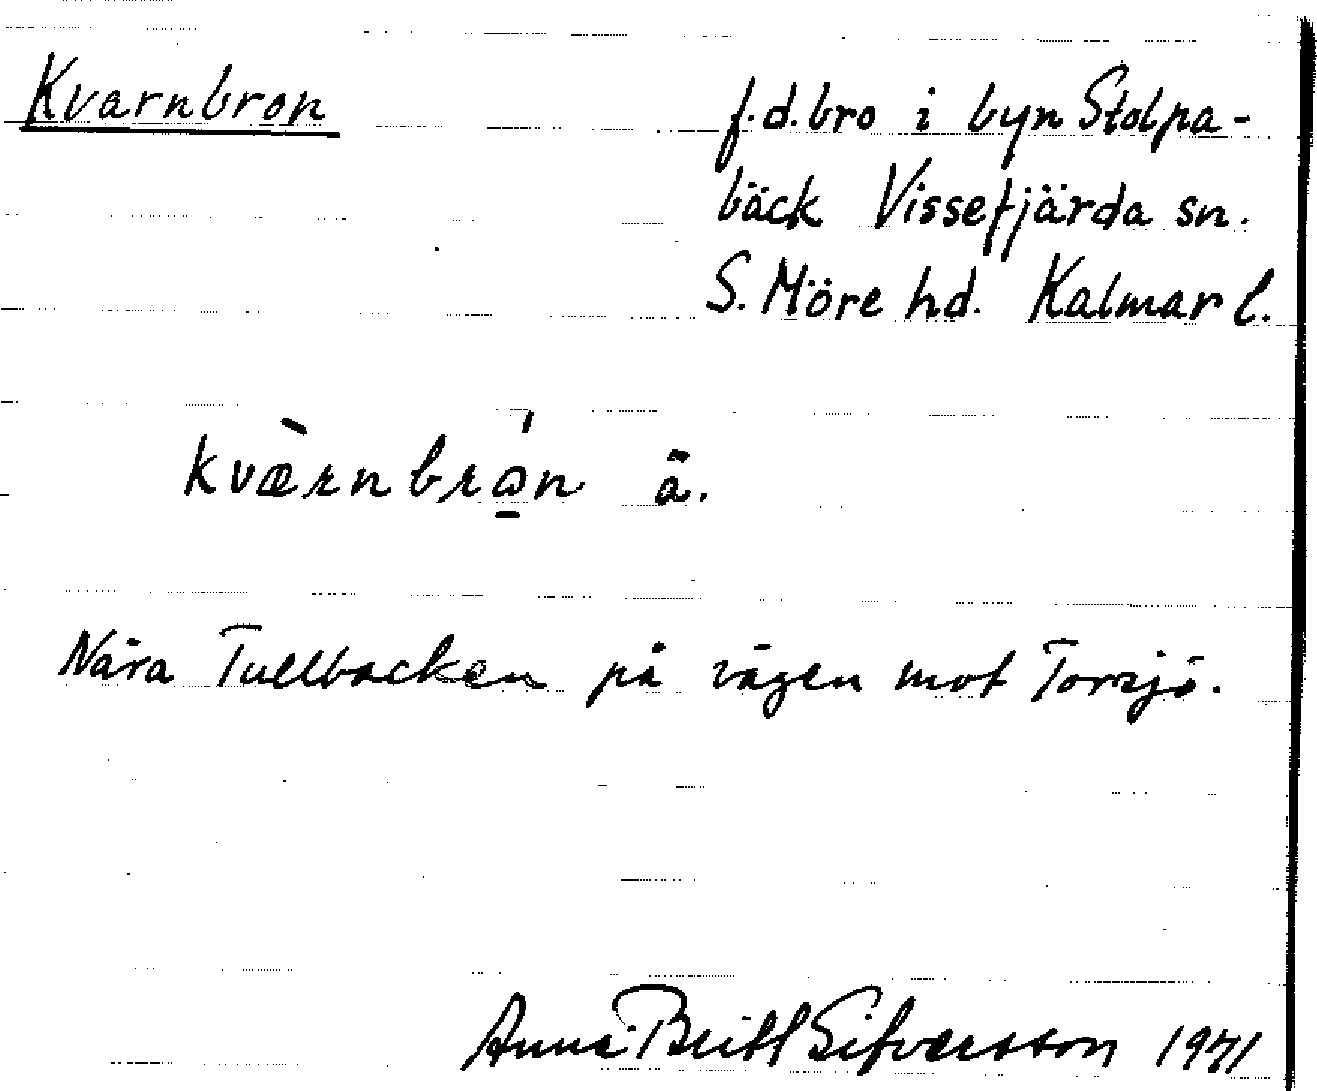 Kvarnbron
f.d. bro i byn Stolpa-
bäck Vissefjärda sn.
S. Möre hd. Kalmar l.
kvæ̀rnbrɷ́n ä.
Nära Tullbacken på vägen mot Torsjö.
Anna-Britt Sifvertsson 1971